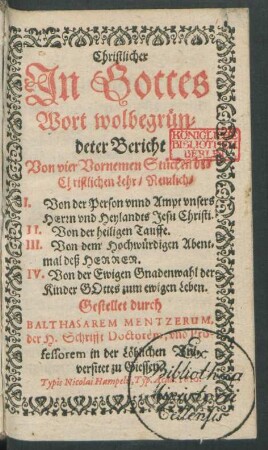 Christlicher
In Gottes
Wort wolbegrün-
deter Bericht
Von vier Vornemen Stücken der
Christlichen Lehr/ Nemlich/
I. Von der Person vnnd Ampt vnsers
HErrn vnd Heylandes Jesu Christi.
II. Von der heiligen Tauffe.
III. Von dem Hochwürdigen Abent-
mal deß HERREN.
IV. Von der Ewigen Gnadenwahl der
Kinder GOttes zum ewigen Leben.
Gestellet durch
BALTHASAREM MENTZERUM,
der H. Schrifft Doctorem, vnd Pro-
fessorem in der Löblichen Vni-
versitet zu Giessen.
Typis Nicolai Hampelii, Typ. Acad.
KÖNIGL.
BIBLIOTHEK
BERLIN
Bibliotheca
Ministerii
Cellensis